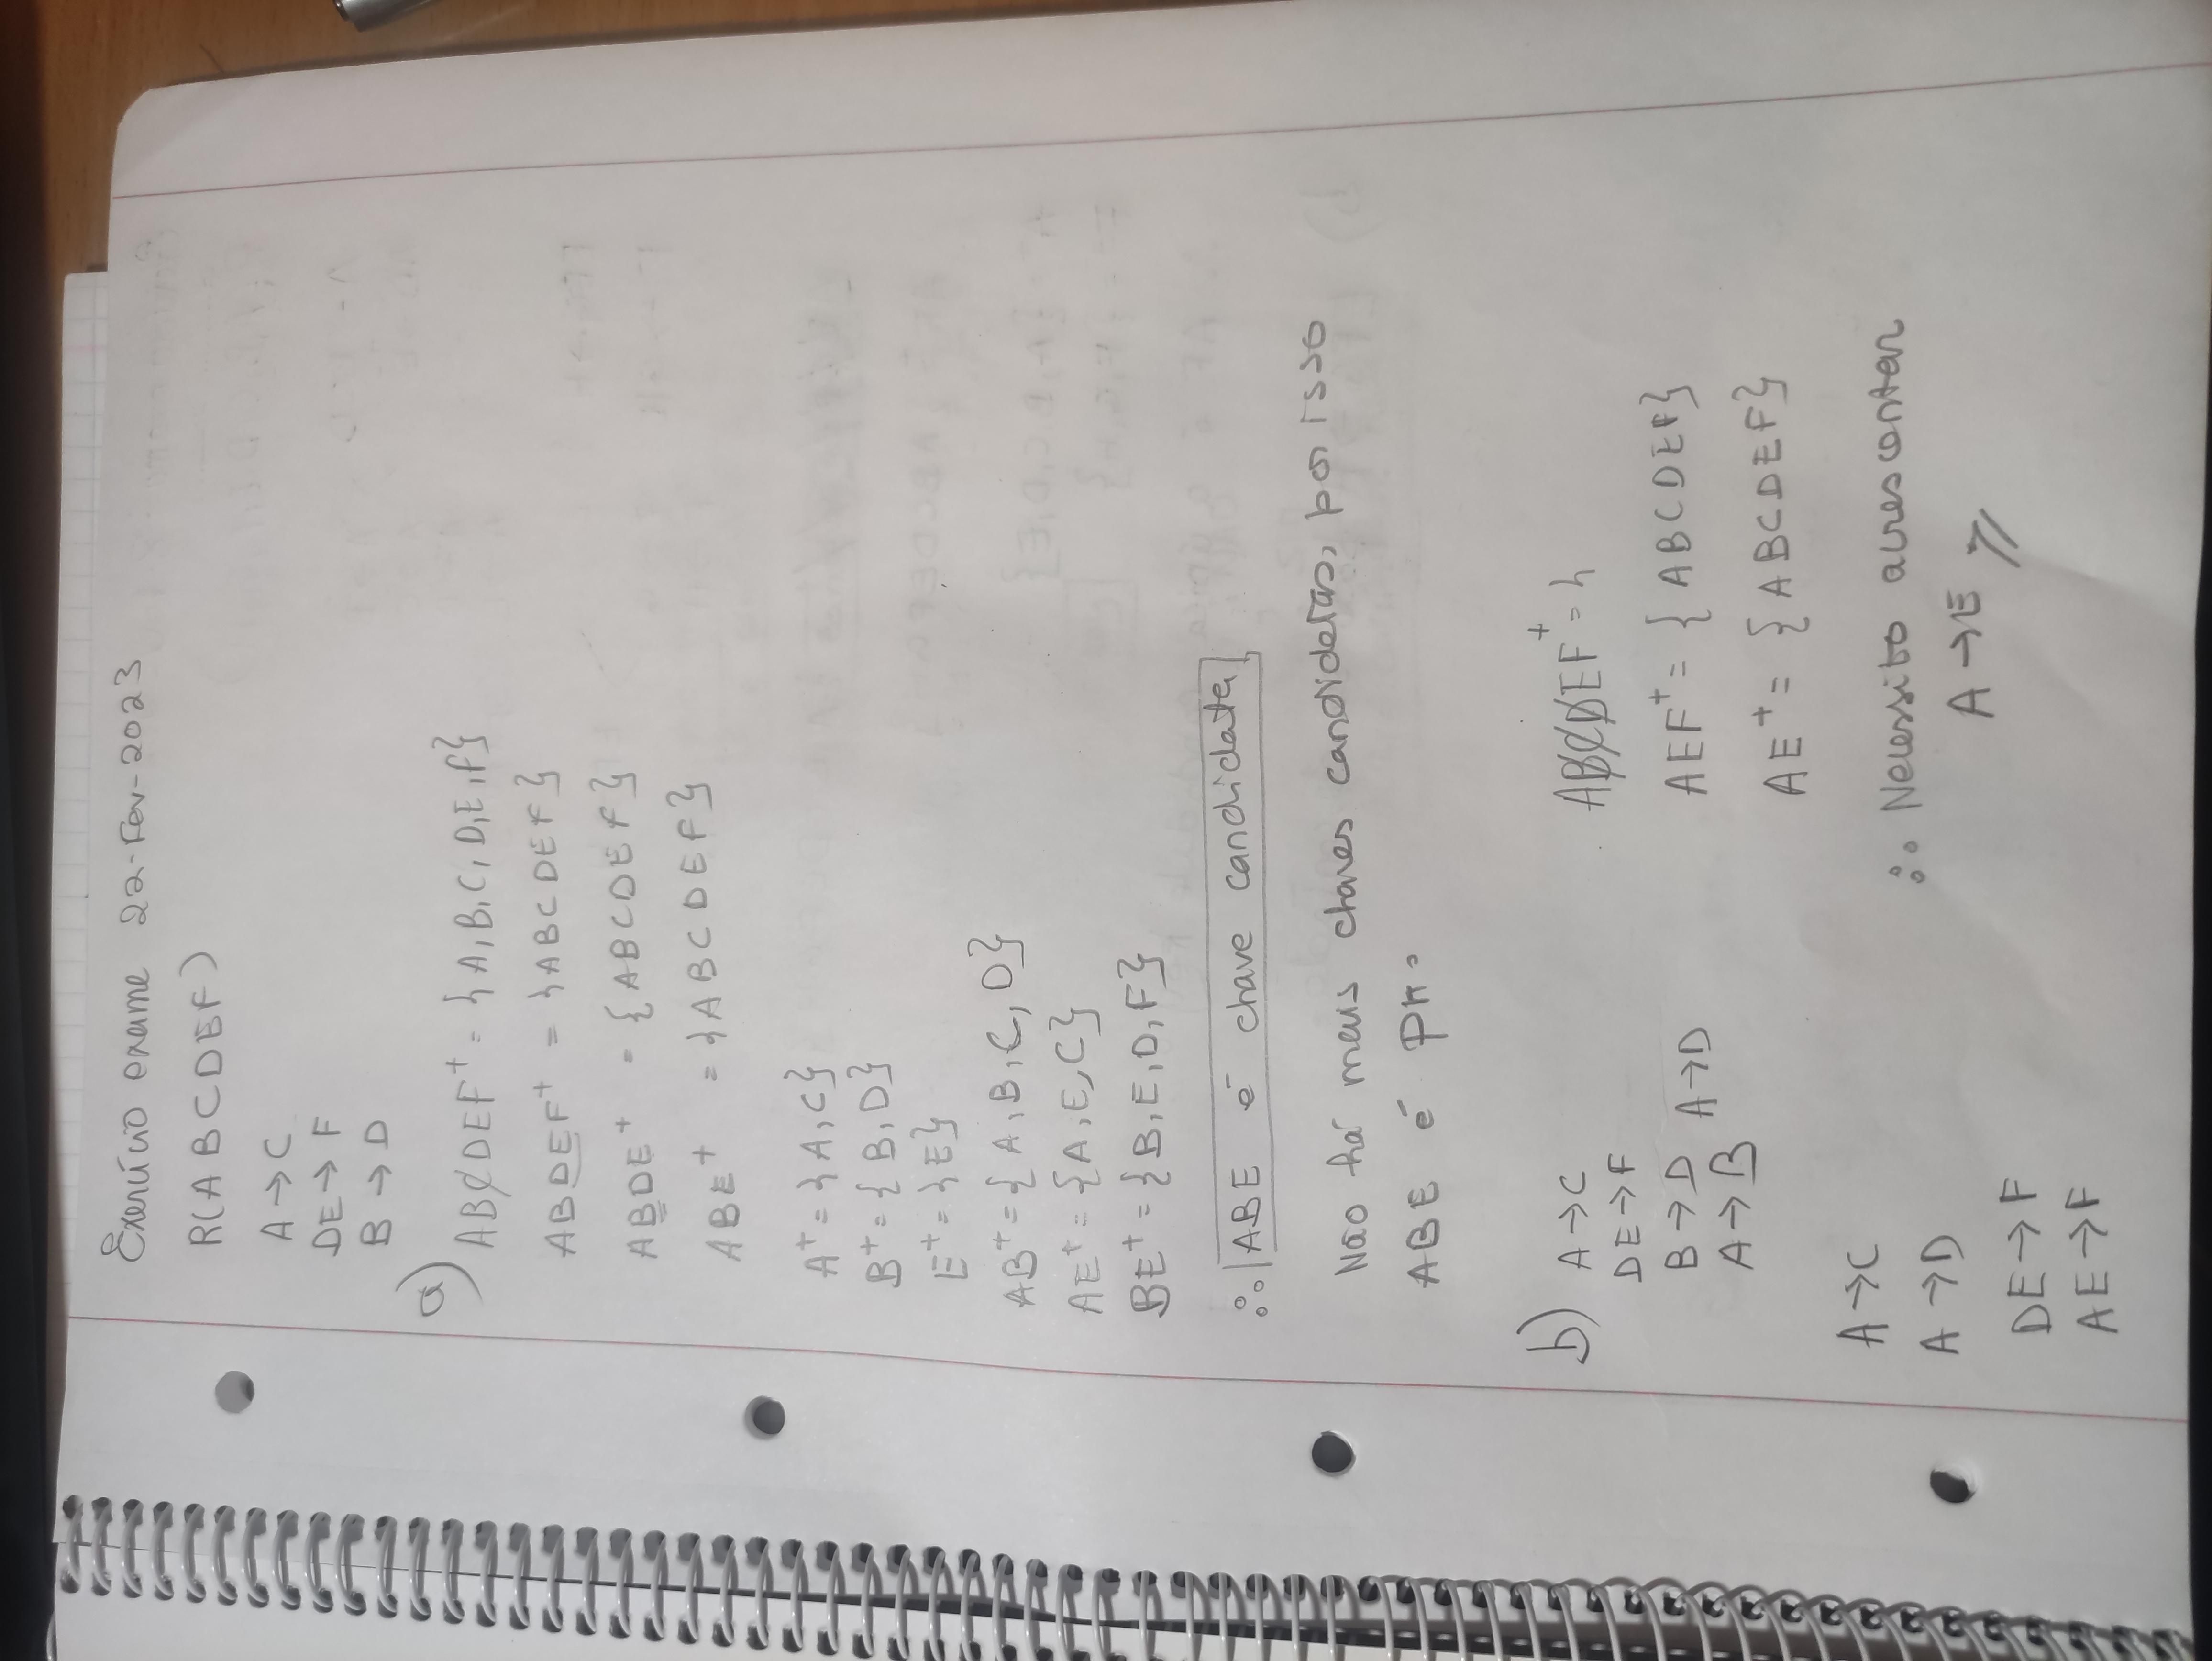 Exercício exame 22-Fev-2023
R(ABCDEF)
A → C
DE → F
B → D
a)
ABCDEF⁺ = {A,B,C,D,E,F}
ABDEF⁺ = {ABCDEF}
ABDE⁺ = {ABCDEF}
ABE⁺ = {ABCDEF}
A⁺ = {A,C}
B⁺ = {B,D}
E⁺ = {E}
AB⁺ = {A,B,C,D}
AE⁺ = {A,E,C}
BE⁺ = {B,E,D,F}
∴ ABE é chave candidata
Não há mais chaves candidatas, por isso
ABE é PK.
b)
A → C
DE → F
B → D A → D
A → B
A → C
A → D
DE → F
AE → F
ABCDEF⁺ = {
AEF⁺ = {ABCDEF}
AE⁺ = {ABCDEF}
∴ Necessito acrescentar
A → E //